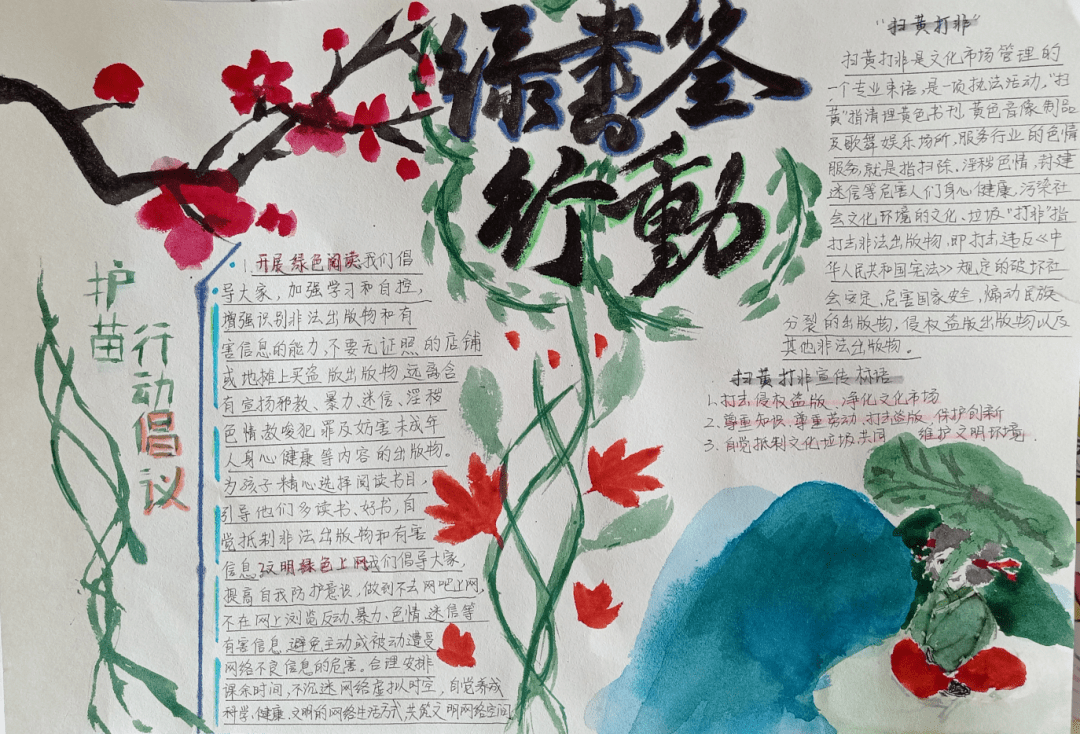 绿書签
行動
护苗
行动倡议
1.开展绿色阅读我们倡
导大家，加强学习和自控，
增强识别非法出版物和有
害信息的能力,不要无证照的店铺
或地摊上买盗版出版物,远离含
有宣扬邪教、暴力、迷信、淫秽
色情,教唆犯罪及妨害未成年
人身心健康等内容的出版物。
为孩子精心选择阅读书目，
引导他们多读书、好书,自
觉抵制非法出版物和有害
信息 2文明绿色上网我们倡导大家,
提高自我防护意识，做到不去网吧上网,
不在网上浏览反动、暴力、色情、迷信等
有害信息,避免主动或被动遭受
网络不良信息的危害。合理安排
课余时间,不沉迷网络虚拟时空，自觉养成
科学、健康、文明的网络生活方式,共筑文明网络空间
“扫黄打非”
扫黄打非是文化市场管理的
一个专业术语,是一项执法活动,“扫
黄”指清理黄色书刊,黄色音像制品
及歌舞娱乐场所,服务行业的色情
服务,就是指扫除,淫秽色情,封建
迷信等危害人们身心健康,污染社
会文化环境的文化、垃圾“打非”指
打击非法出版物,即打击违反《中
华人民共和国宪法》规定的破坏社
会安定,危害国家安全,煽动民族
分裂的出版物,侵权盗版出版物以及
其他非法出版物。
扫黄打非宣传标语
1.打击侵权盗版 净化文化市场
2.尊重知识、尊重劳动、打击盗版、保护创新
3.自觉抵制文化垃圾共同 维护文明环境.